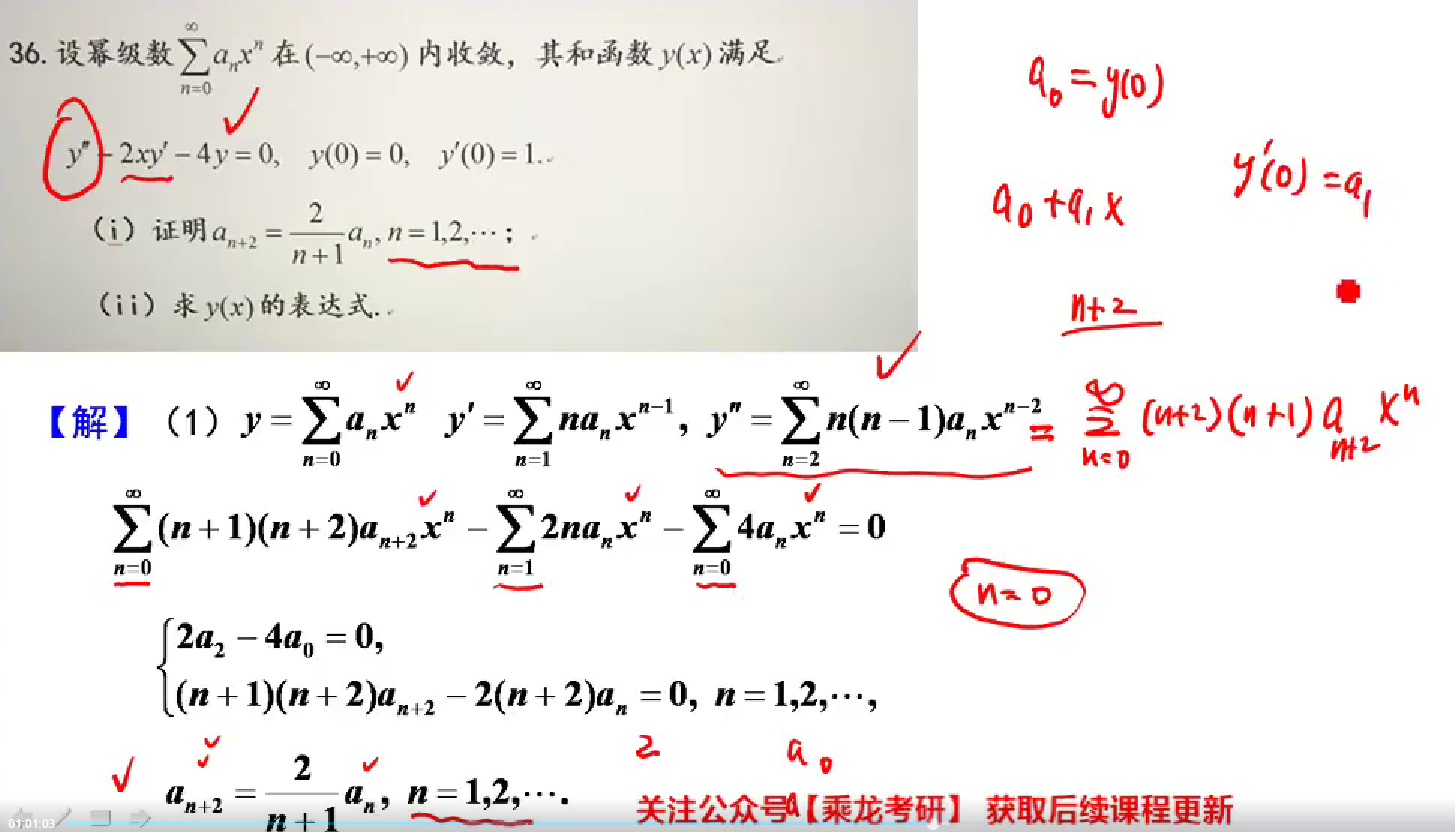 36. 设幂级数 $\sum_{n=0}^{\infty} a_n x^n$ 在 $(-\infty,+\infty)$ 内收敛，其和函数 $y(x)$ 满足
$y'' - 2xy' - 4y = 0, \quad y(0) = 0, \quad y'(0) = 1.$
（i）证明 $a_{n+2} = \frac{2}{n+1} a_n, n = 1,2,\cdots$；
（ii）求 $y(x)$ 的表达式.
$a_0 = y(0)$
$y'(0) = a_1$
$a_0 + a_1 x$
$n+2$
【解】（1）$y = \sum_{n=0}^{\infty} a_n x^n \quad y' = \sum_{n=1}^{\infty} n a_n x^{n-1}, \quad y'' = \sum_{n=2}^{\infty} n(n-1) a_n x^{n-2}$ $= \sum_{n=0}^{\infty} (n+2)(n+1) a_{n+2} x^n$
$\sum_{n=0}^{\infty} (n+1)(n+2) a_{n+2} x^n - \sum_{n=1}^{\infty} 2n a_n x^n - \sum_{n=0}^{\infty} 4 a_n x^n = 0$
$n = 0$
$2a_2 - 4a_0 = 0,$
$(n+1)(n+2) a_{n+2} - 2(n+2) a_n = 0, \ n = 1,2,\cdots,$
2 $a_0$
$a_{n+2} = \frac{2}{n+1} a_n, \ n = 1,2,\cdots.$
关注公众号【乘龙考研】 获取后续课程更新
01:01:03